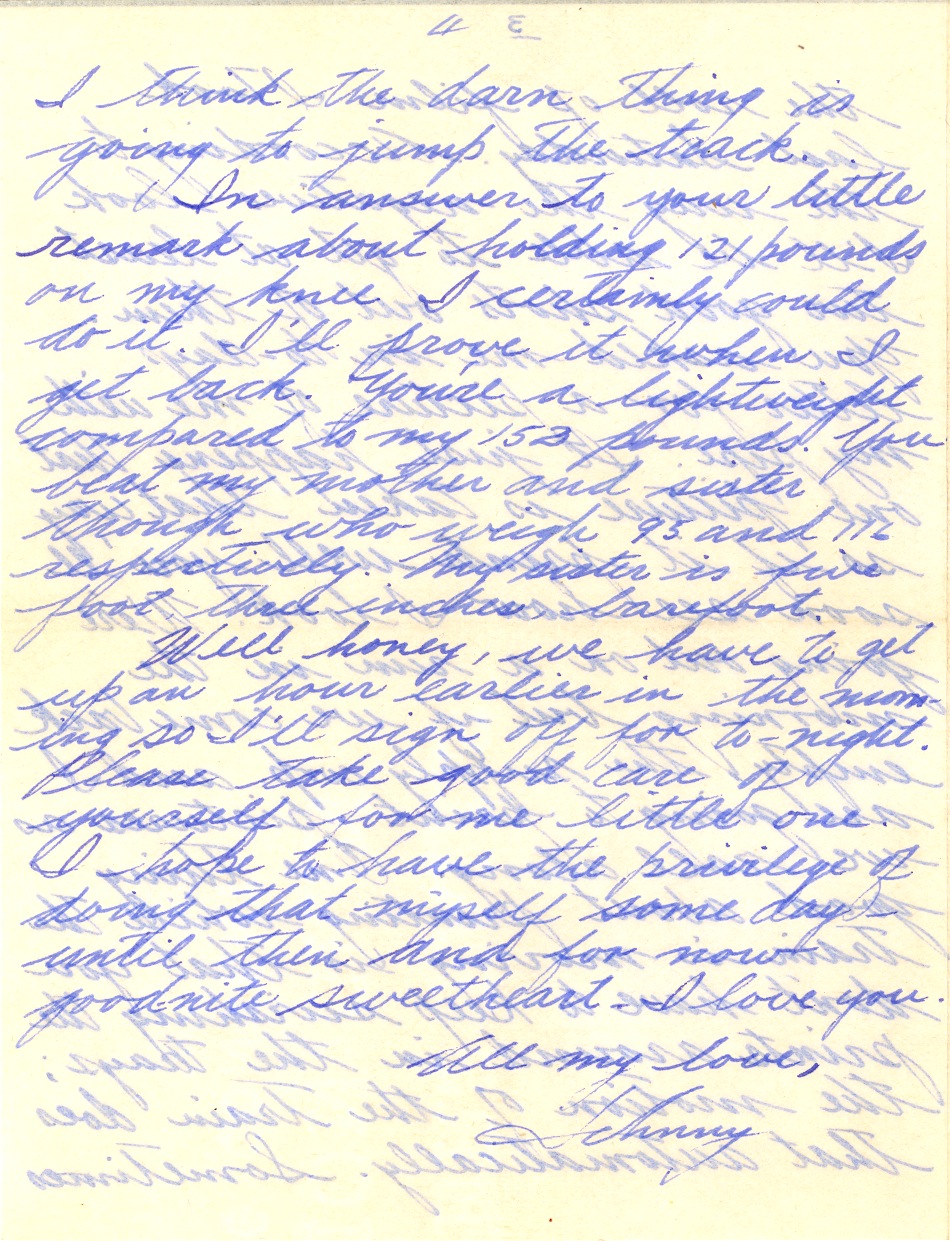 4
I think the darn thing is
going to jump the track.
In answer to your little
remark about holding 121 pounds
on my knee I certainly could
do it. I'll prove it when I
get back. You're a lightweight
compared to my 152 pounds. You
beat my mother and sister
though who weigh 95 and 116
respectively. My sister is five
foot three inches barefoot.
Well honey, we have to get
up an hour earlier in the morn-
ing so I'll sign off for to-night.
Please take good care of
yourself for me little one.
I hope to have the privilege of
doing that myself some day -
until then and for now -
goodnite sweetheart - I love you.
All my love,
Johnny